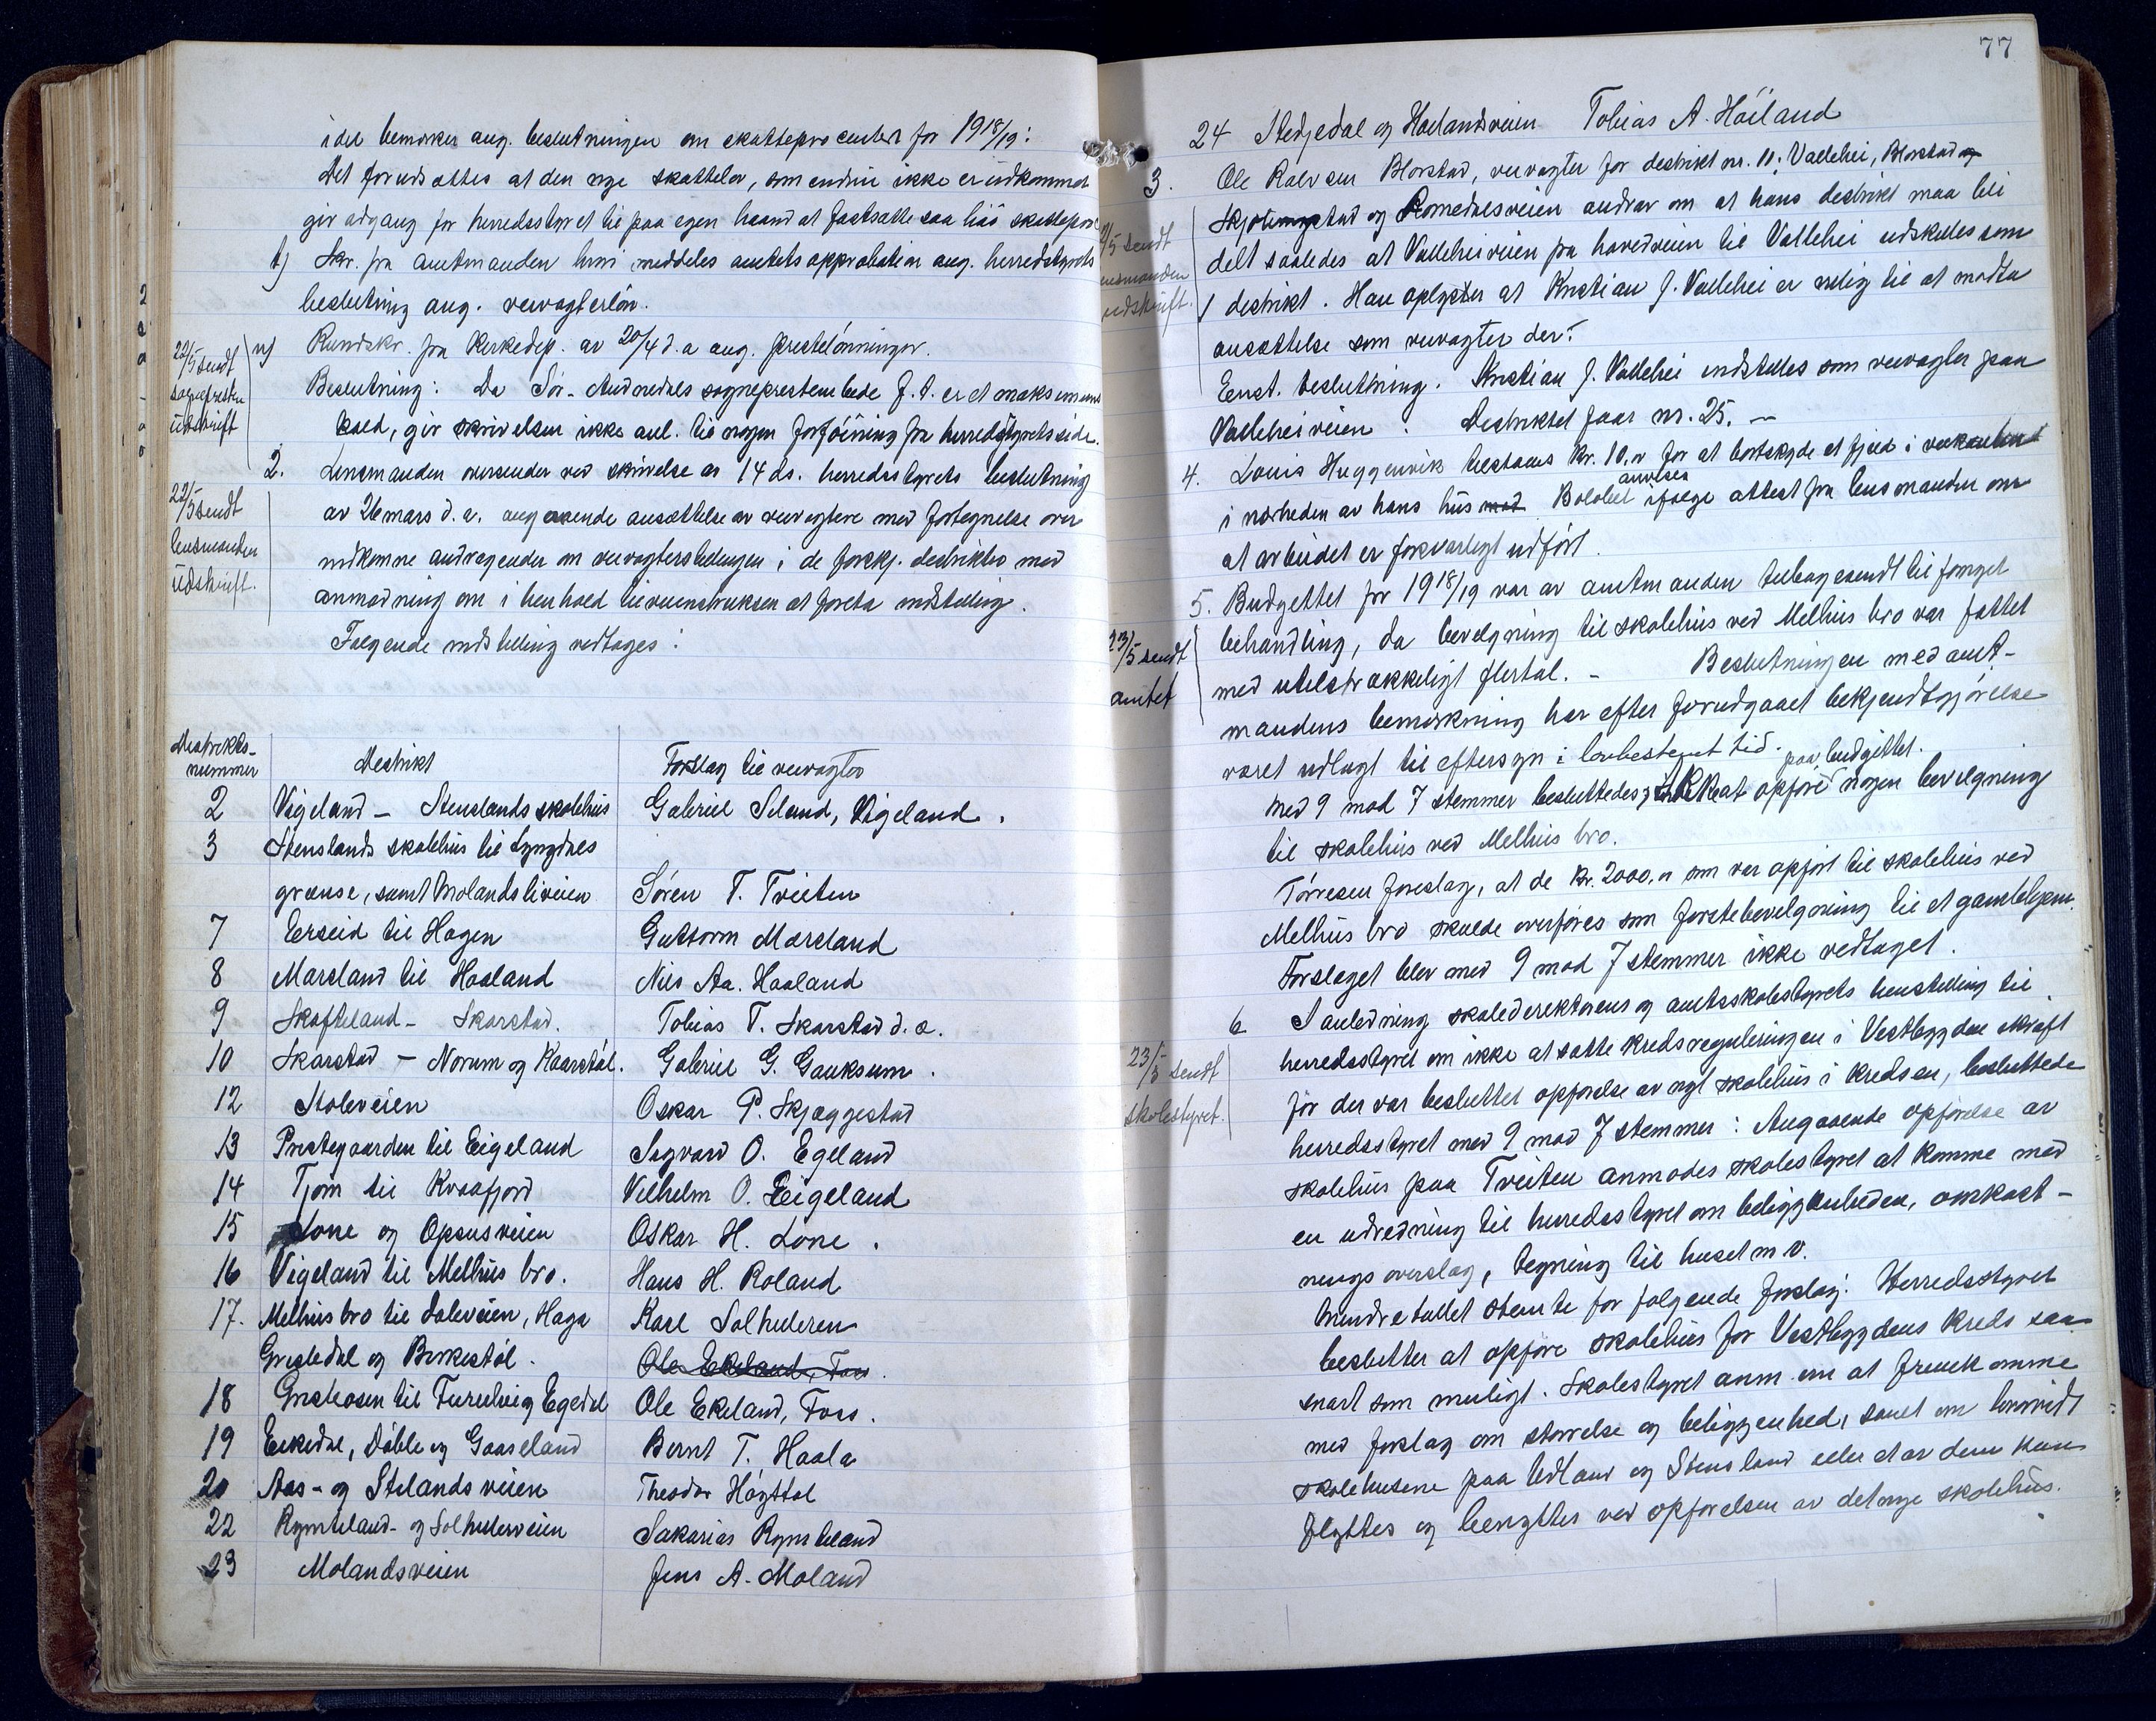 idet bemerker ang. beslutningen om skatteprocenter for 1918/19:
Det forudsættes at den nye skattelov, som endnu ikke er udkommet
gir adgang for herredsstyret til paa egen haand at fastsætte saa høi skatteproc
t) Skr. fra amtmanden hvori meddeles amtets approbation ang. herredstyrets
beslutning ang. veivogterløn.
22/5 sendt
sognepresten
udskrift
u) Rundskr. fra Kirkedep. av 20/4 d.a ang. prestelønninger.
Beslutning: Da Sør-Audnedals sogneprestembede f.t. er et maksimums
kald, gir skrivelsen ikke anl. til nogen forføining fra herredstyrets side.
22/5 sendt
lensmanden
udskrift.
2. Lensmanden oversender ved skrivelse av 14 ds. herredsstyrets beslutning
av 26 mars d.a. angaaende ansættelse av veivogtere med fortegnelse over
indkomne andragender om veivogterstillingen i de forskj. distrikter med
anmodning om i henhold til veiinstruksen at foreta indstilling.
Følgende indstilling vedtages:
Distrikts-
nummer Distrikt Forslag til veivogter
2 Vigeland - Stenslands skolehus Gabriel Seland, Vigeland.
3 Stenslands skolehus til Lyngdals
grænse, samt Molandsliveien Søren T. Tveiten
7 Erseid til Hagen Guttorm Marsland
8 Marsland til Haaland Nils Aa. Haaland
9 Skofteland - Skarstad. Tobias T. Skarstad d.e.
10 Skarstad - Norum og Kaarstøl. Gabriel G. Gauksum.
12 Stoleveien Oskar P. Skjæggestad
13 Prestegaarden til Eigeland Sigvard O. Egeland
14 Tjøm til Kvaafjord Vilhelm O. Eigeland
15 Lone og Opsusveien Oskar H. Lone.
16 Vigeland til Melhus bro. Hans H. Roland
17. Melhus bro til Daleveien, Haga Karl Solhuderen
Grisledal og Birkestøl. Ole Ekeland, Foss.
18 Grisleosen til Furulvig Egedal Ole Ekeland, Foss.
19 Eikedal, Døble og Gaaseland Bernt T. Haala
20 Aas- og Stilands veien Theodor Høgttal
22 Rymteland- og Solhuderveien Sakarias Rymteland
23 Molandsveien Jens A. Moland
77
24 Stedjedal og Høilandsveien Tobias A. Høiland
3. Ole Rolvsen Blorstad, veivogter for distrikt nr. 11: Vallehei, Blorstad og
Skjollingstad og Romedalsveien andrar om at hans distrikt maa bli
/5 sendt
lensmanden
udskrift.
delt saaledes at Valleheiveien fra hovedveien til Vallehei udskilles som
1 distrikt. Han oplyster at Kristian J. Vallehei er villig til at motta
ansættelse som veivogter der.
Enst. beslutning. Kristian J. Vallehei indstilles som veivogter paa
Valleheiveien. Distriktet faar nr. 25. -
4. Louis Huggenvik tilstaaes kr. 10,00 for at bortskyde et fjeld i veikanten
i nærheden av hans hus mod Beløbet anvises ifølge attest fra lensmanden om
at arbeidet er forsvarligt udført.
23/5 sendt
amtet
5. Budgettet for 1918/19 var av amtmanden tilbagesendt til fornyet
behandling, da bevilgning til skolehus ved Melhus bro var fattet
med utilstrækkeligt flertal. - Beslutningen med amt-
mandens bemerkning har efter forudgaaet bekjendtgjørelse
været udlagt til eftersyn i lovbestemt tid.
Med 9 mod 7 stemmer besluttedes ikke at opføre paa budgettet nogen bevilgning
til skolehus ved Melhus bro.
Tørresen foreslog, at de kr. 2000,00 som var opført til skolehus ved
Melhus bro skulde overføres som førstebevilgning til et gamlehjem.
Forslaget blev med 9 mod 7 stemmer ikke vedtaget.
23/5 sendt
skolestyret.
6 I anledning skoledirektørens og amtsskolestyrets henstilling til
herredsstyret om ikke at sætte kredsreguleringen i Vestbygden i kraft
før der var besluttet opførelse av nyt skolehus i kredsen, besluttede
herredsstyret med 9 mod 7 stemmer: Angaaende opførelse av
skolehus paa Tveiten anmodes skolestyret at komme med
en udredning til herredsstyret om beliggenheden, omkost-
ningsoverslag, tegning til huset m v.
Mindretallet stemte for følgende forslag: Herredsstyret
beslutter at opføre skolehus for Vestbygdens kreds saa
snart som muligt. Skolestyret anm. om at fremkomme
med forslag om størrelse og beliggenhed, samt om hvorvidt
skolehusene paa Udland og Stensland eller et av dem kan
flyttes og benyttes ved opførelsen av det nye skolehus.